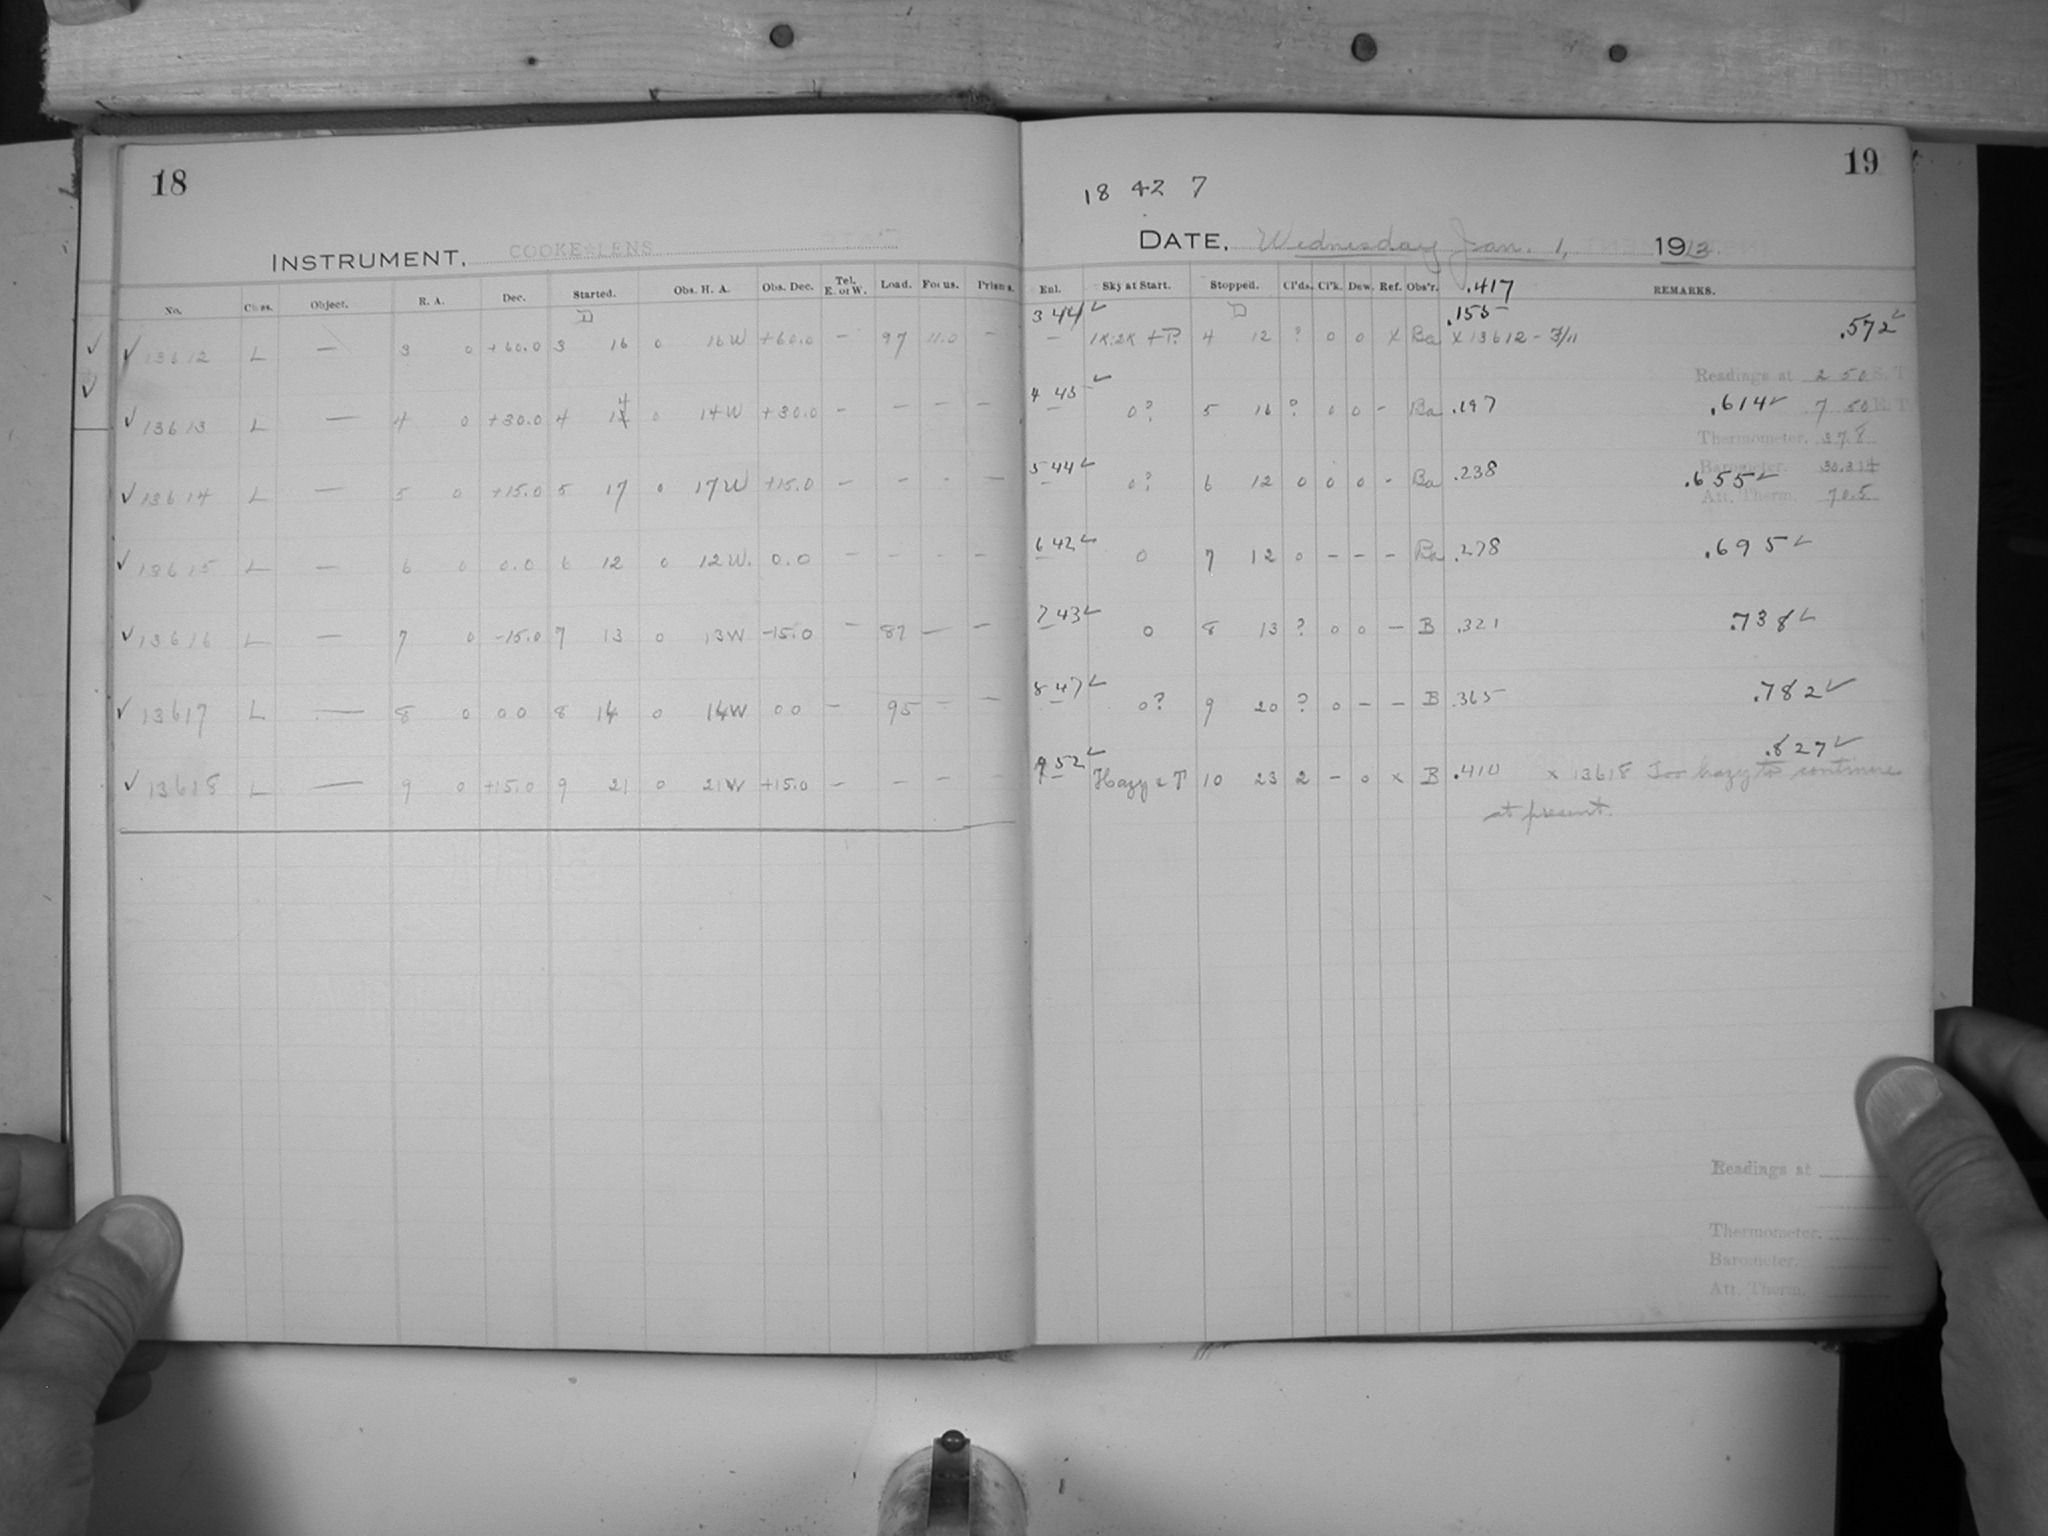 18
19
18 42 7
INSTRUMENT. COOKE LENS
DATE. Wednesday Jan. 1, 1913
No. Class. Object. R. A. Dec. Started. Obs. H. A. Obs. Dec. Tel. E. or W. Load. Focus. Prisms. Enl. Sky at Start. Stopped. Cl'ds. Cl'k. Dew. Ref. Obs'r. .417 REMARKS.
D D
344 ✓ .155 .572 ✓
✓ ✓ 13612 L — 3 0 +60.0 3 16 0 16W +60.0 — 97 11.0 — — 4 12 ? 0 0 x Ba x 13612 -
Readings at 2 50 S. T
✓
4 45 ✓
✓ 13613 L — 4 0 +30.0 4 14 0 14W +30.0 - — — — — 0? 5 16 ? 0 0 - Ba .197 .614 ✓ 7 50
Thermometer. 37.8
Barometer. 30.314
5 44 ✓
✓ 13614 L — 5 0 +15.0 5 17 0 17W +15.0 — - - — — 0? 6 12 0 0 0 - Ba .238 .655 ✓
Att. Therm. 70.5
6 42 ✓
✓ 13615 L — 6 0 0.0 6 12 0 12W. 0.0 — - - — — 0 7 12 0 - - - Ba .278 .695 ✓
7 43 ✓
✓ 13616 L — 7 0 -15.0 7 13 0 13W -15.0 — 87 — — — 0 8 13 ? 0 0 — B .321 .738 ✓
8 47 ✓
✓ 13617 L — 8 0 00 8 14 0 14W 00 — 95 — — — 0? 9 20 ? 0 - - B .365 .782 ✓
9 52 ✓ .827 ✓
✓ 13618 L — 9 0 +15.0 9 21 0 21W +15.0 — — — — — Hazy 10 23 2 - 0 x B .410 x 13618 Too hazy to continue
at present.
Readings at
Thermometer.
Barometer.
Att. Therm.